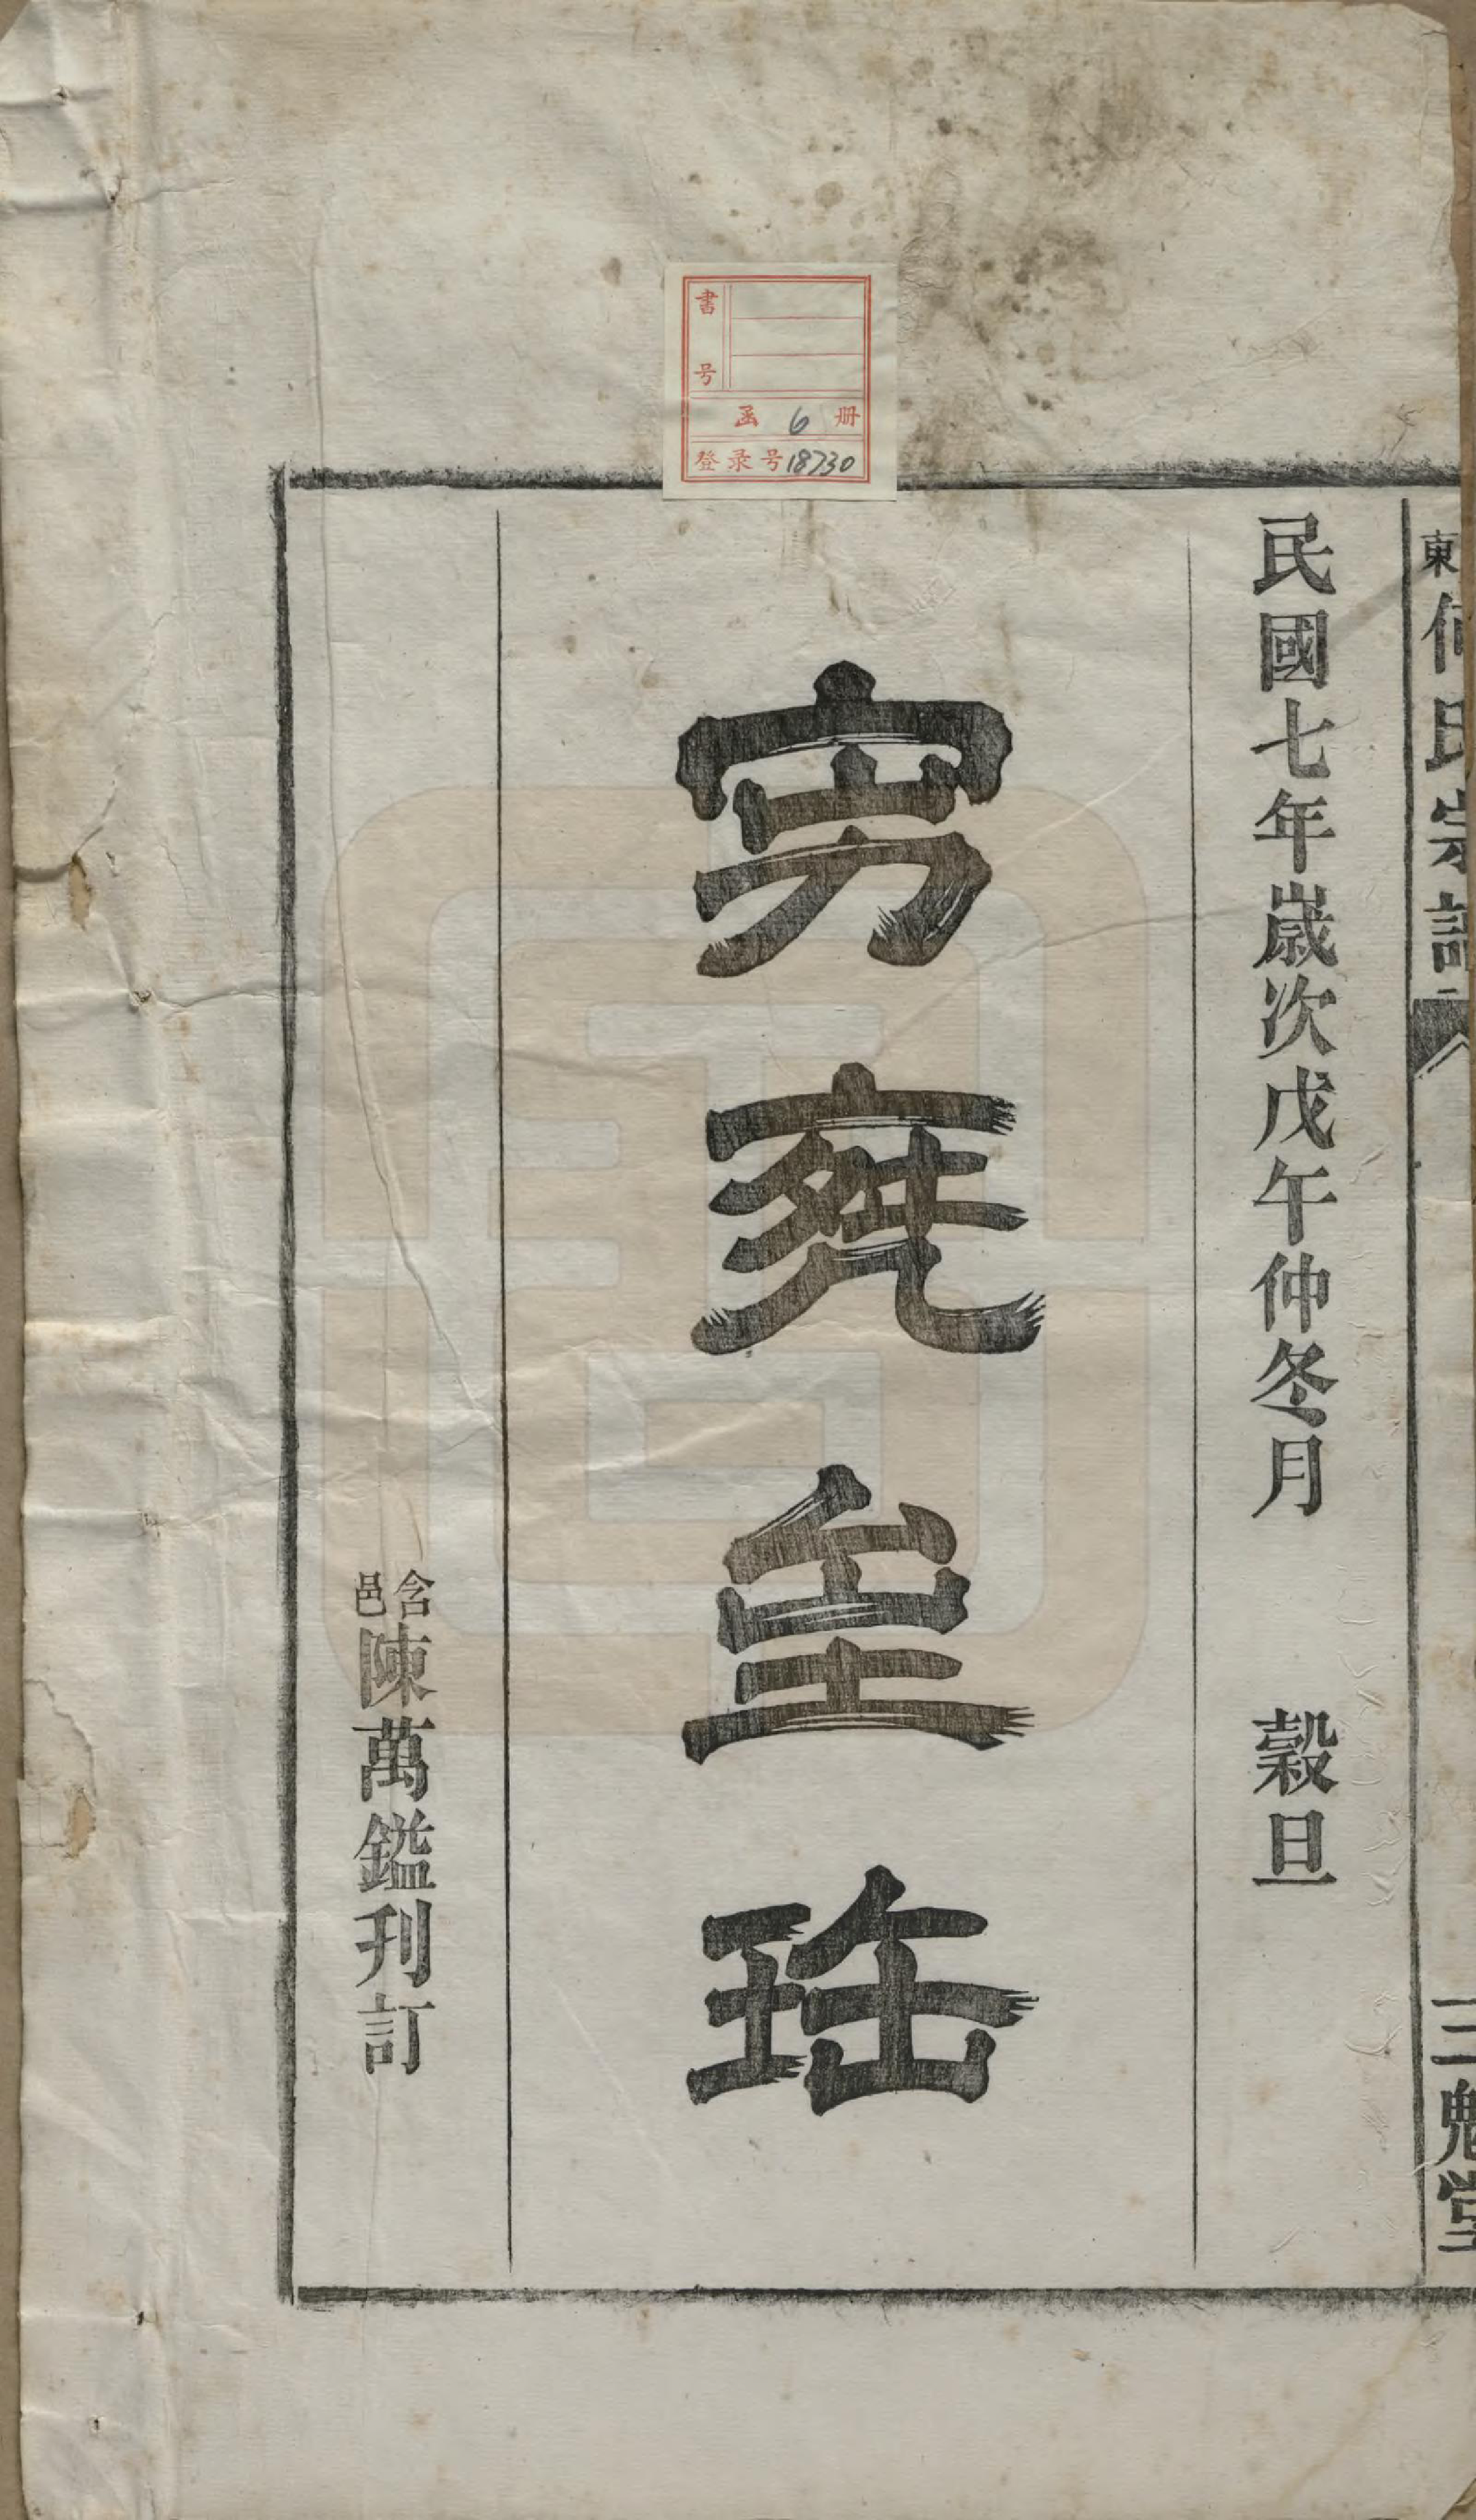 書号
函 6 册
登录号18730
東 何氏宗譜 三魁堂
民國七年歳次戊午仲冬月 穀旦
珤
含邑陳萬鎰刊訂